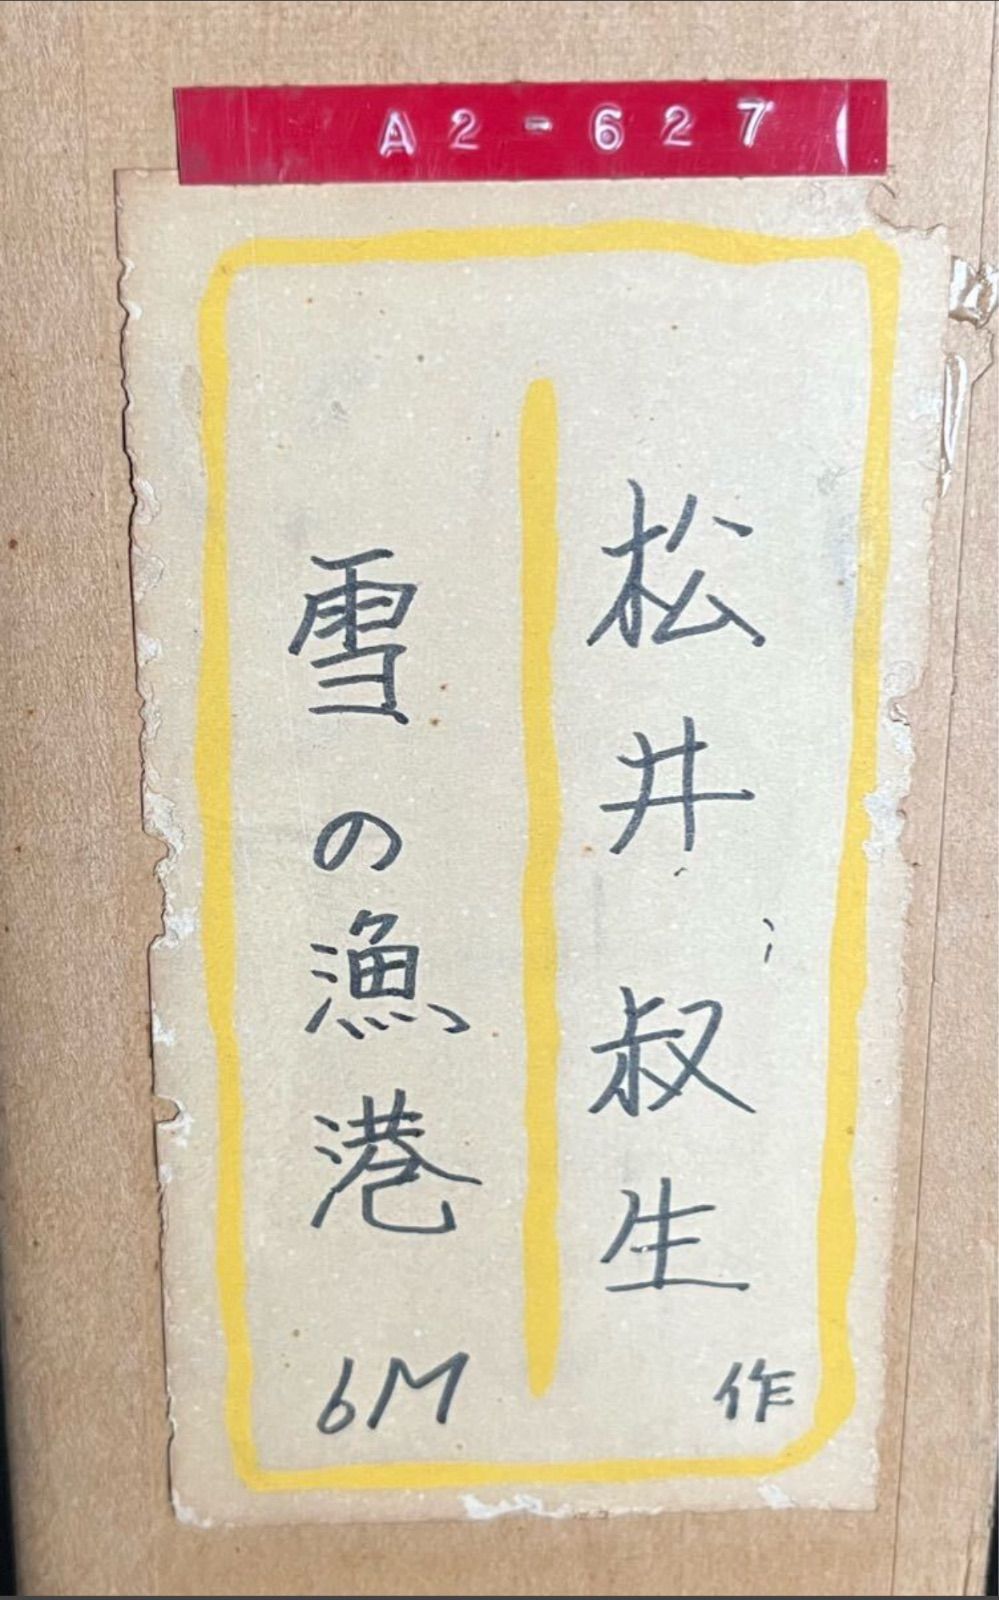 A2-627
松井叔生
作
雪の漁港
6M